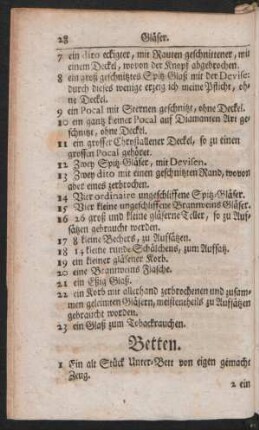 28 Gläser.
7 ein dito eckigter, mit Rauten geschnittener, mit
einem Deckel, wovon der Knopf abgebrochen.
8 ein groß geschnitztes Spitz-Glaß mit der Devise:
durch dieses wenige erzeig ich meine Pflicht, oh-
ne Deckel.
9 ein Pocal mit Sternen geschnitzt, ohne Deckel.
10 ein gantz kleiner Pocal auf Diamanten Art ge-
schnitzt, ohne Deckel.
11 ein grosser Chrystallener Deckel, so zu einen
grossen Pocal gehöret.
12 Zwey Spitz-Gläser, mit Devisen.
13 Zwey dito mit einen geschnitzten Rand, wovon
aber eines zerbrochen.
14 Vier ordinaire ungeschliffene Spitz-Gläser.
15 Vier kleine ungeschliffene Branweins Gläser.
16 26 groß und kleine gläserne Teller, so zu Auf-
sätzen gebraucht werden.
17 8 kleine Bechers, zu Aufsätzen.
18 14 kleine runde Schälchens, zum Aufsatz.
19 ein kleiner gläserner Korb.
20 eine Branweins Flasche.
21 ein Eßig Glaß.
22 ein Korb mit allerhand zerbrochenen und zusam-
men geleimten Gläsern, meistentheils zu Aufsätzen
gebraucht worden.
23 ein Glaß zum Tobackrauchen.
Betten.
1 Ein alt Stück Unter-Bett von eigen gemacht
Zeug.
2 ein